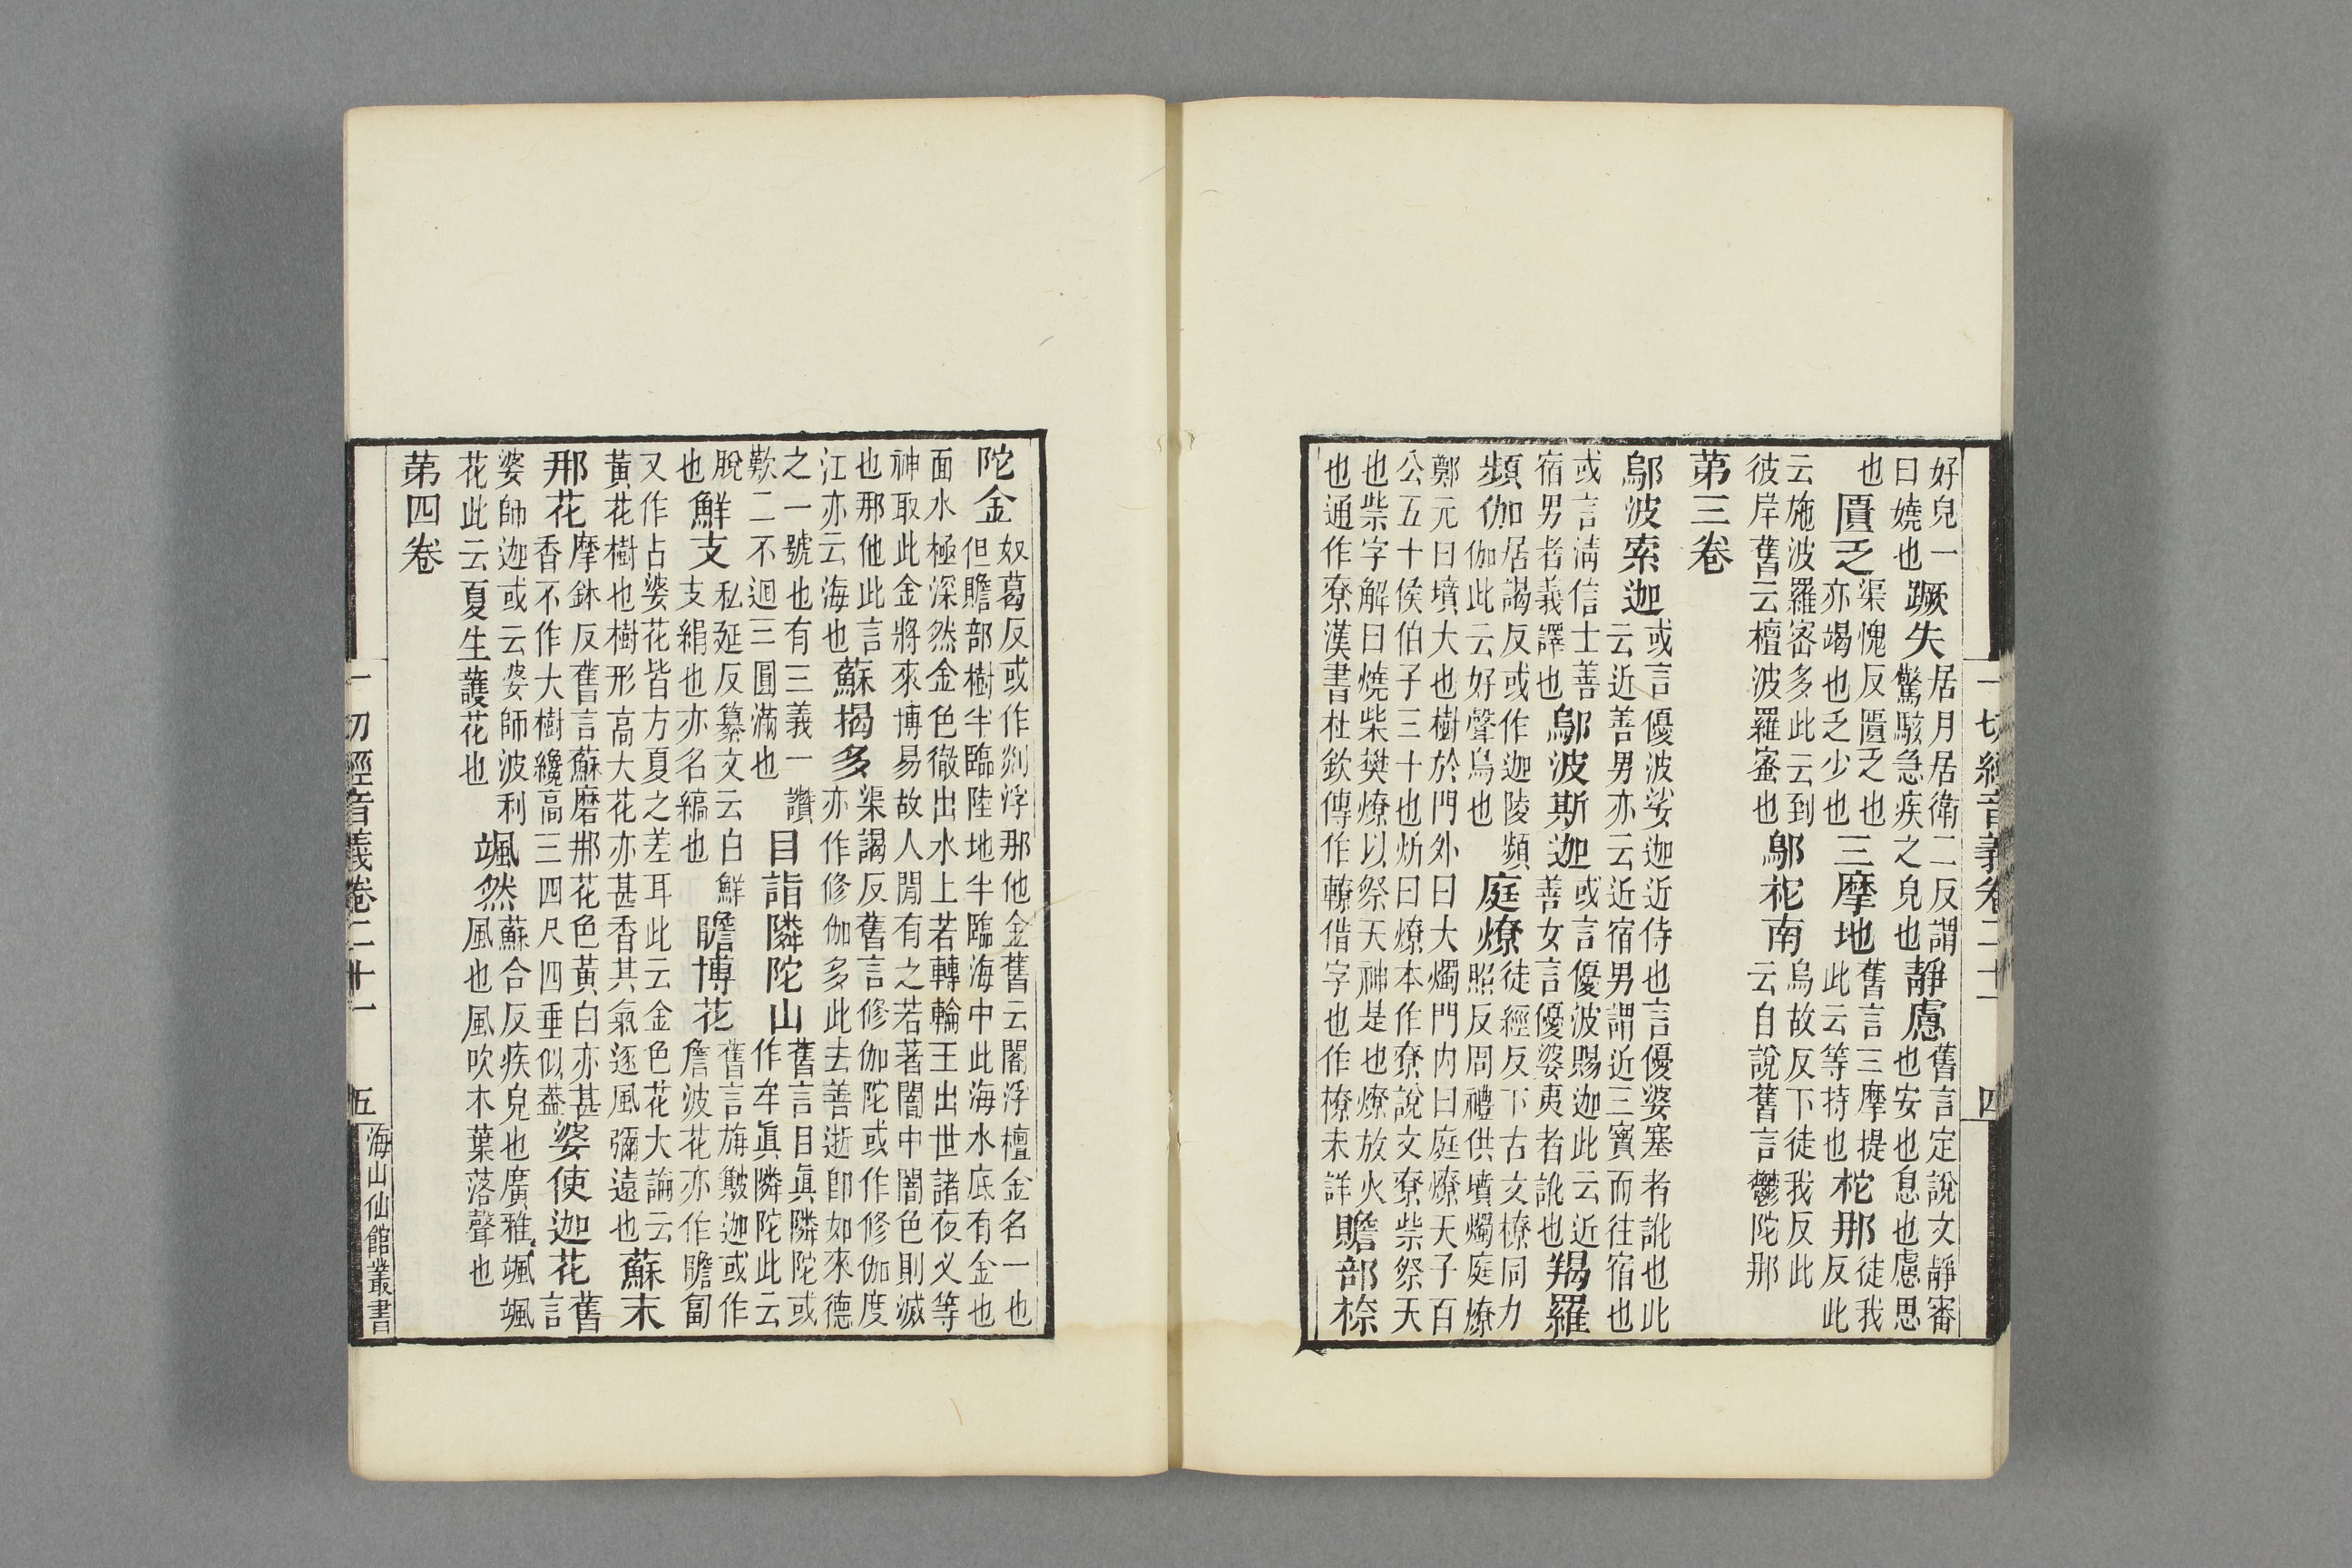 好皃一
曰嬈也
蹶失
居月居衛二反謂
驚駭急疾之皃也
靜慮
舊言定說文靜審
也安也息也慮思
也
匱乏
渠愧反匱乏也
亦竭也乏少也
三摩地
舊言三摩提
此云等持也
柁那
徒我反此
云施
波羅宻多此云到
彼岸舊云檀波羅蜜也
鄔柁南
烏故反下徒我反此
云自說舊言鬱陀那
苐三卷
鄔波索迦
或言優波娑迦近侍也言優婆塞者訛也此
云近善男亦云近宿男謂近三寳而往宿也
或言淸信士善
宿男者義譯也
鄔波斯迦
或言優波賜迦此云近
善女言優婆夷者訛也
羯羅
頻伽
居謁反或作迦陵頻
伽此云好聲鳥也
庭燎
徒經反下古文橑同力
照反周禮供墳燭庭燎
鄭元曰墳大也樹於門外曰大燭門内曰庭燎天子百
公五十侯伯子三十也炘曰燎本作尞說文尞祡祭天
也祡字解曰燒柴樊燎以祭天神是也燎放火
也通作尞漢書杜欽傳作轑借字也作橑未詳
贍部㮈
一切經音義卷二十一
四
陀金
奴葛反或作剡浮那他金舊云閻浮檀金名一也
但贍部樹半臨陸地半臨海中此海水底有金也
面水極深然金色徹出水上若轉輪王出世諸夜义等
神取此金將來博易故人閒有之若著闇中闇色則滅
也那他此言
江亦云海也
蘇揭多
渠謁反舊言修伽陀或作修伽度
亦作修伽多此去善逝卽如來德
之一號也有三義一讚
歎二不迴三圓滿也
目詣隣陀山
舊言目眞隣陀或
作牟眞隣陀此云
脫
也
鮮支
私延反纂文云白鮮
支絹也亦名縞也
瞻博花
舊言旃簸迦或作
詹波花亦作瞻匐
又作占婆花皆方夏之差耳此云金色花大論云
黃花樹也樹形高大花亦甚香其氣逐風彌遠也
蘇末
那花
摩鉢反舊言蘇磨那花色黃白亦甚
香不作大樹纔高三四尺四垂似葢
婆使迦花
舊言
婆師迦或云婆師波利
花此云夏生䕶花也
颯然
蘇合反疾皃也廣雅颯颯
風也風吹木葉落聲也
苐四卷
一切經音義卷二十一
五
海山仙館叢書